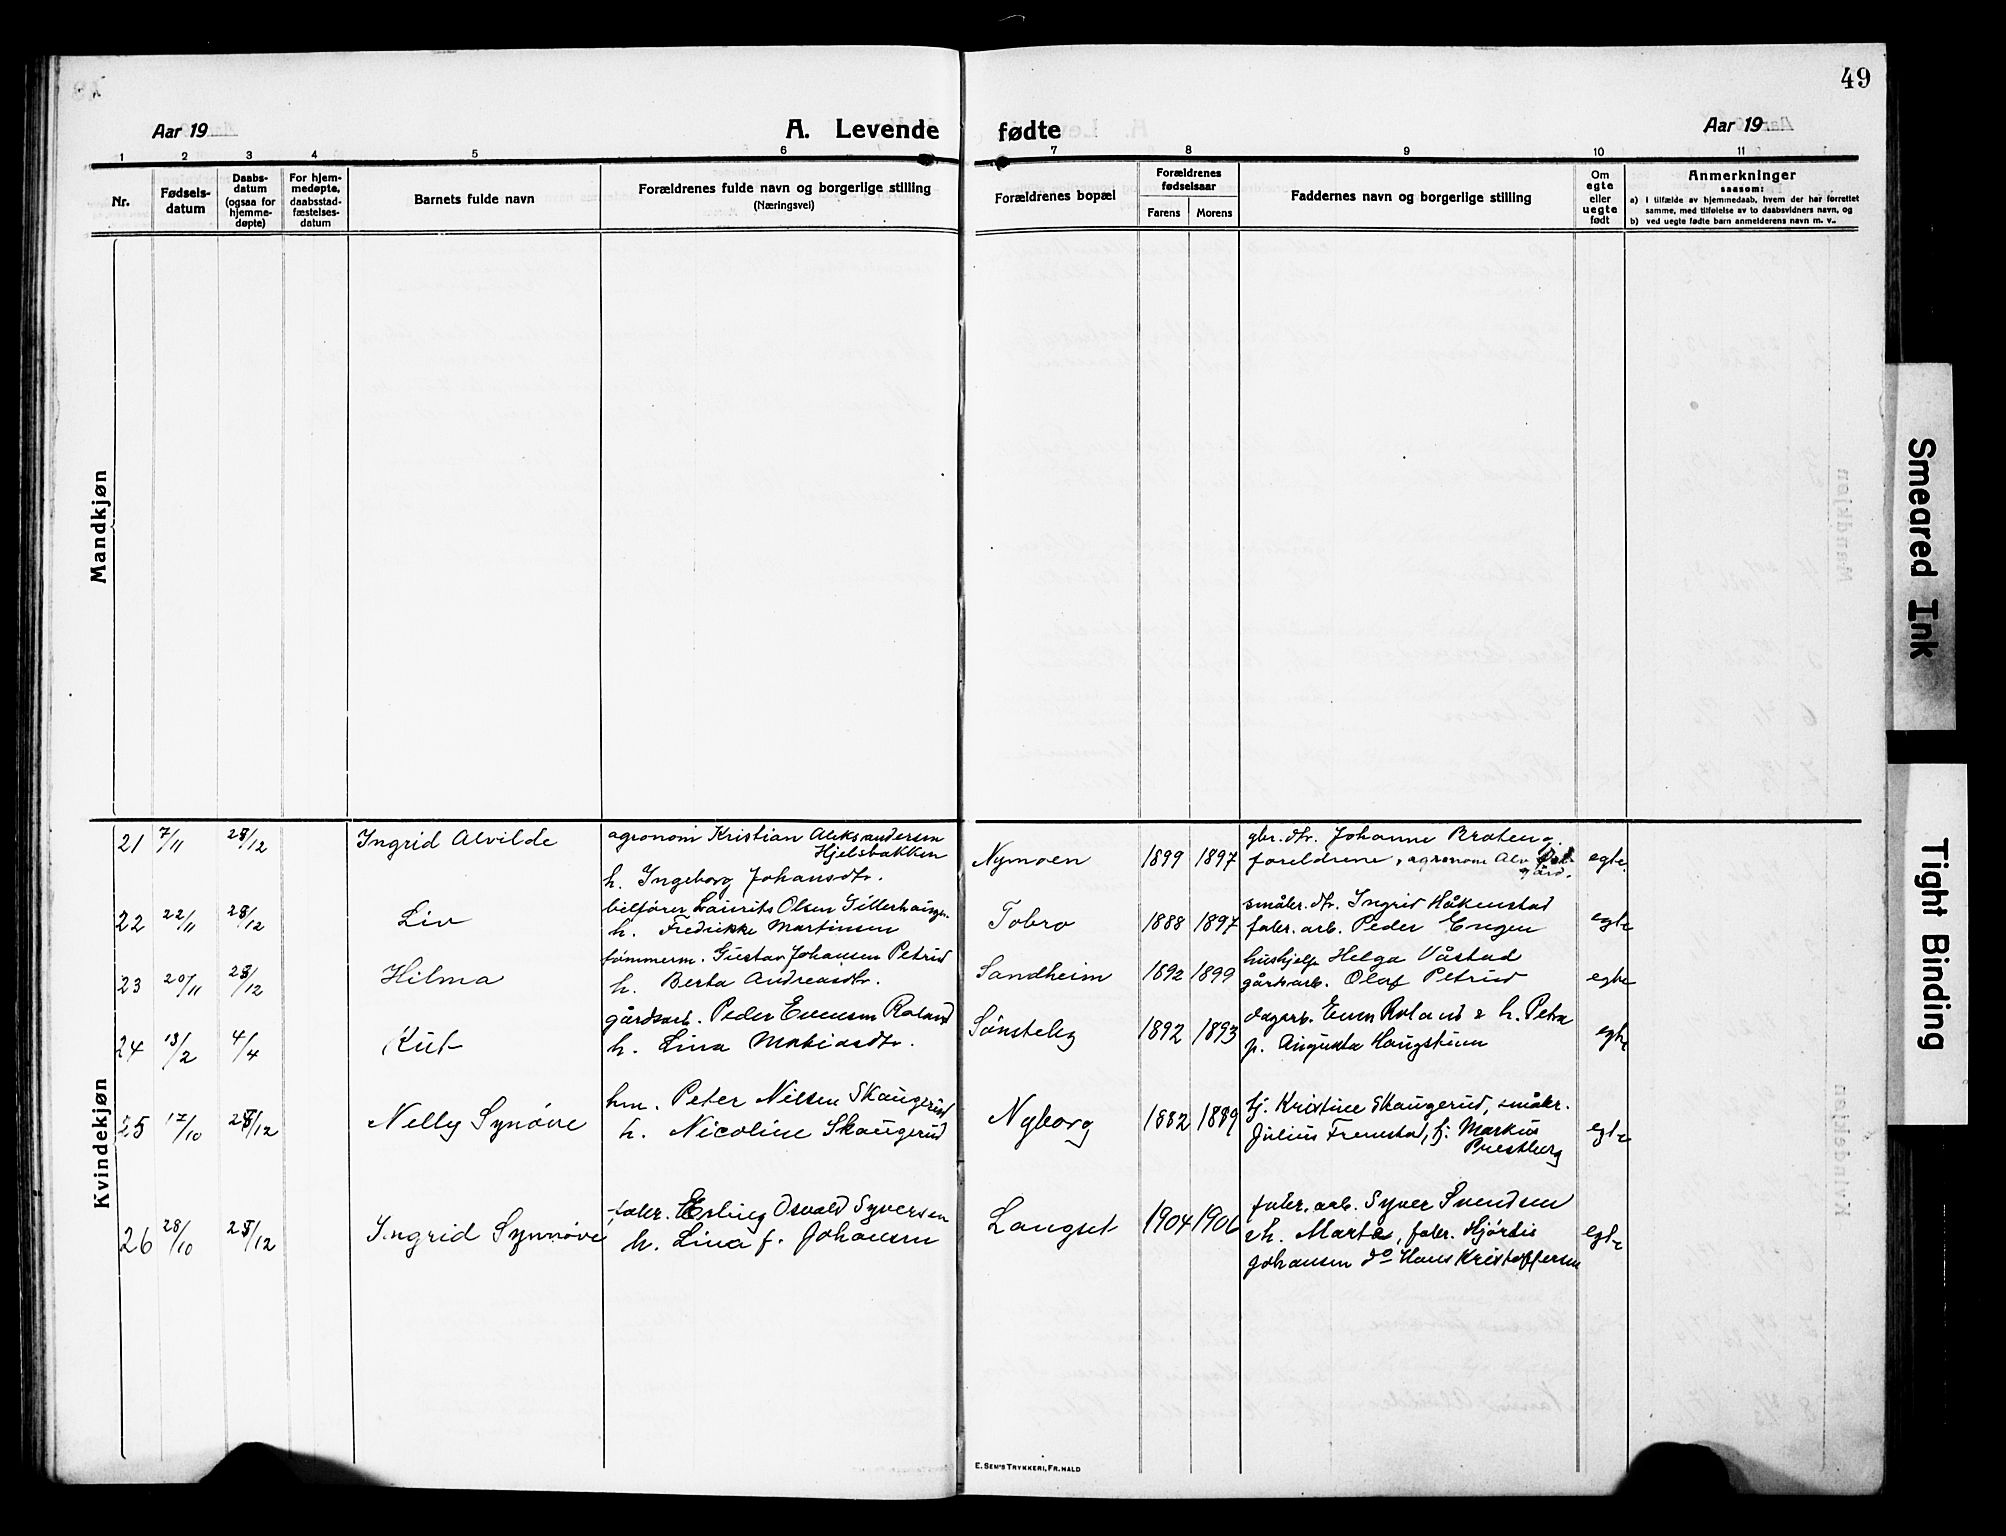 49
Aar 19
A. Levende
fødte
Aar 19
1 2 3 4 5 6 7 8 9 10 11
Nr.
Fødsels-
datum
Daabs-
datum
(ogsaa for
hjemme-
døpte)
For hjem-
medøpte,
daabsstad-
fæstelses-
datum
Barnets fulde navn
Forældrenes fulde navn og borgerlige stilling
(Næringsvei)
Forældrenes bopæl
Forældrenes
fødselsaar
Farens Morens
Faddernes navn og borgerlige stilling
Om
egte
eller
uegte
født
Anmerkninger
saasom:
a) i tilfælde av hjemmedaab, hvem der har forrettet
samme, med tilføielse av to daabsvidners navn, og
b) ved uegte fødte barn anmelderens navn m. v.
Mandkjøn
Kvindekjøn
21 7/11 28/12 Ingrid Alvilde
agronom Kristian Aleksandersen
Hjelsbakken
h. Ingeborg Johansdtr.
Nymoen 1899 1897
gbr. dtr. Johanne Braten,
foreldrene, agronom Alv
egte.
22 22/11 28/12 Liv
bilfører Laurits Olsen
h. Fredrikke Martinsen
Tobro 1888 1897
småbr. dtr. Ingrid Håkenstad
fabr. arb. Peder Engen
egte
23 20/11 28/12 Hilma
tømmerm. Gustav Johansen Petrud
h. Berta Andreasdtr.
Sandheim 1892 1899
hushjelp Helga Våstad
gårdsarb. Olaf Petrud
egte
24 13/2 4/4 Rut
gårdsarb. Peder Evensen Roland
h. Lina Matiasdtr.
Sønsteby 1892 1893
dagarb. Even Roland & h. Petra
p. Augusta Haugstuen
egte
25 17/10 28/12 Nelly Synøve
hm. Peter Nilsen Skaugerud
h. Nicoline Skaugerud
Nyborg 1882 1889
fj. Kristine Skaugerud, småbr.
Julius Frenstad, fj. Markus
Prestberg
egte
26 28/10 28/12 Ingrid Synnøve
fabr. Erling Osvald Syversen
h. Lina f. Johansen
Langset 1904 1906
fabr. arb. Syver Svendsen
& h. Marte, fabr. Hjørdis
Johansen do Hans Kristoffersen
egte
E. SEM'S TRYKKERI, FR.HALD
Smeared Ink
Tight Binding